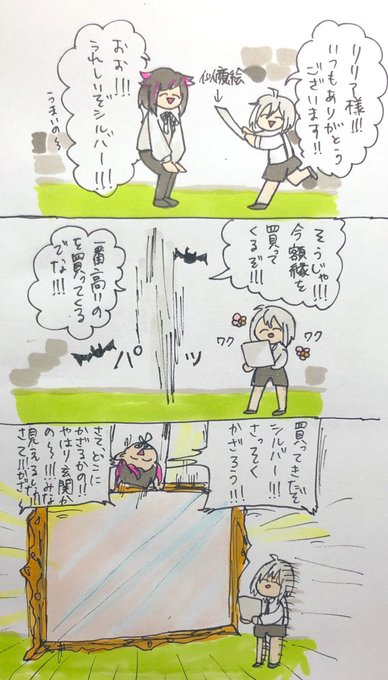 リリア様!!!
いつもありがとう
ございます!!
似顔絵
おお!!!
うれしいぞ
シルバー!!!
うまいの〜
そうじゃ!!!
今額縁を
買って
くるぞ!!!
ワク
ワク
パッ
一番高いの
を買ってくる
でな!!!
買ってきたぞ
シルバー!!!
さっそく
かざろう!!!
さてどこに
かざるかの!!
やはり玄関か
の〜!!!みな